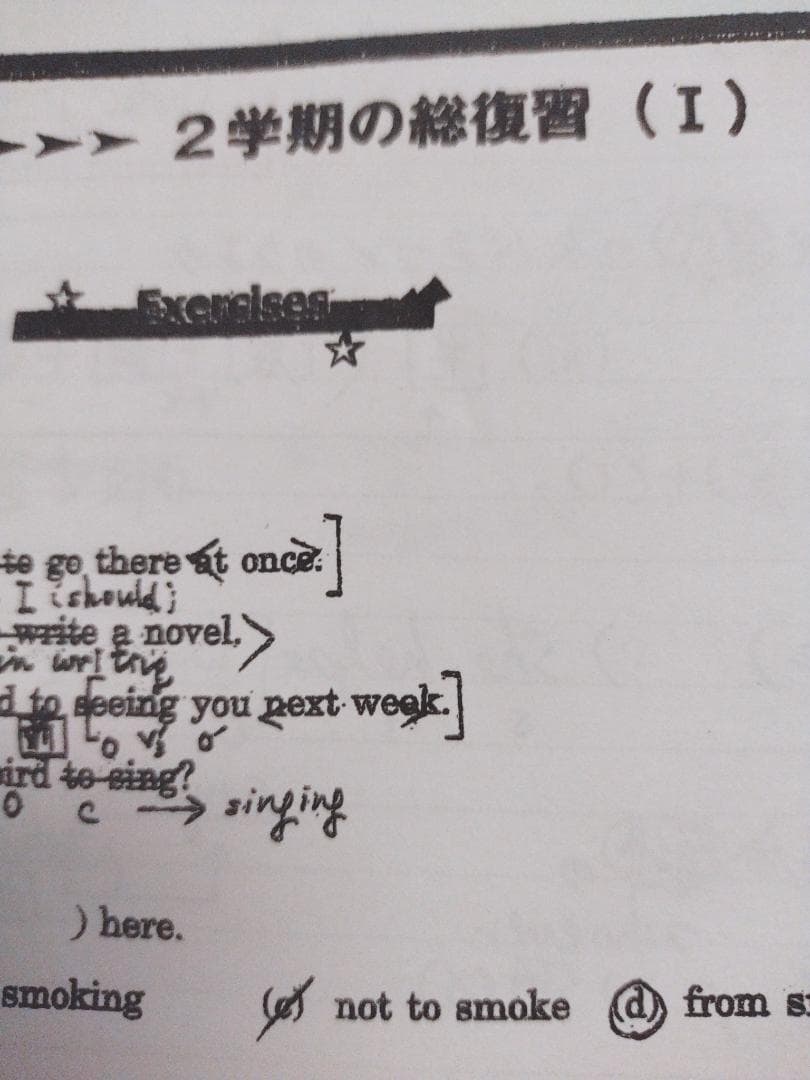 2学期の総復習 (I)
Exercises
to go there at once.]
I (should;
write a novel.
in writing
d to seeing you next week.]
o v' o'
ird to sing?
O C → singing
) here.
smoking (c) not to smoke (d) from s